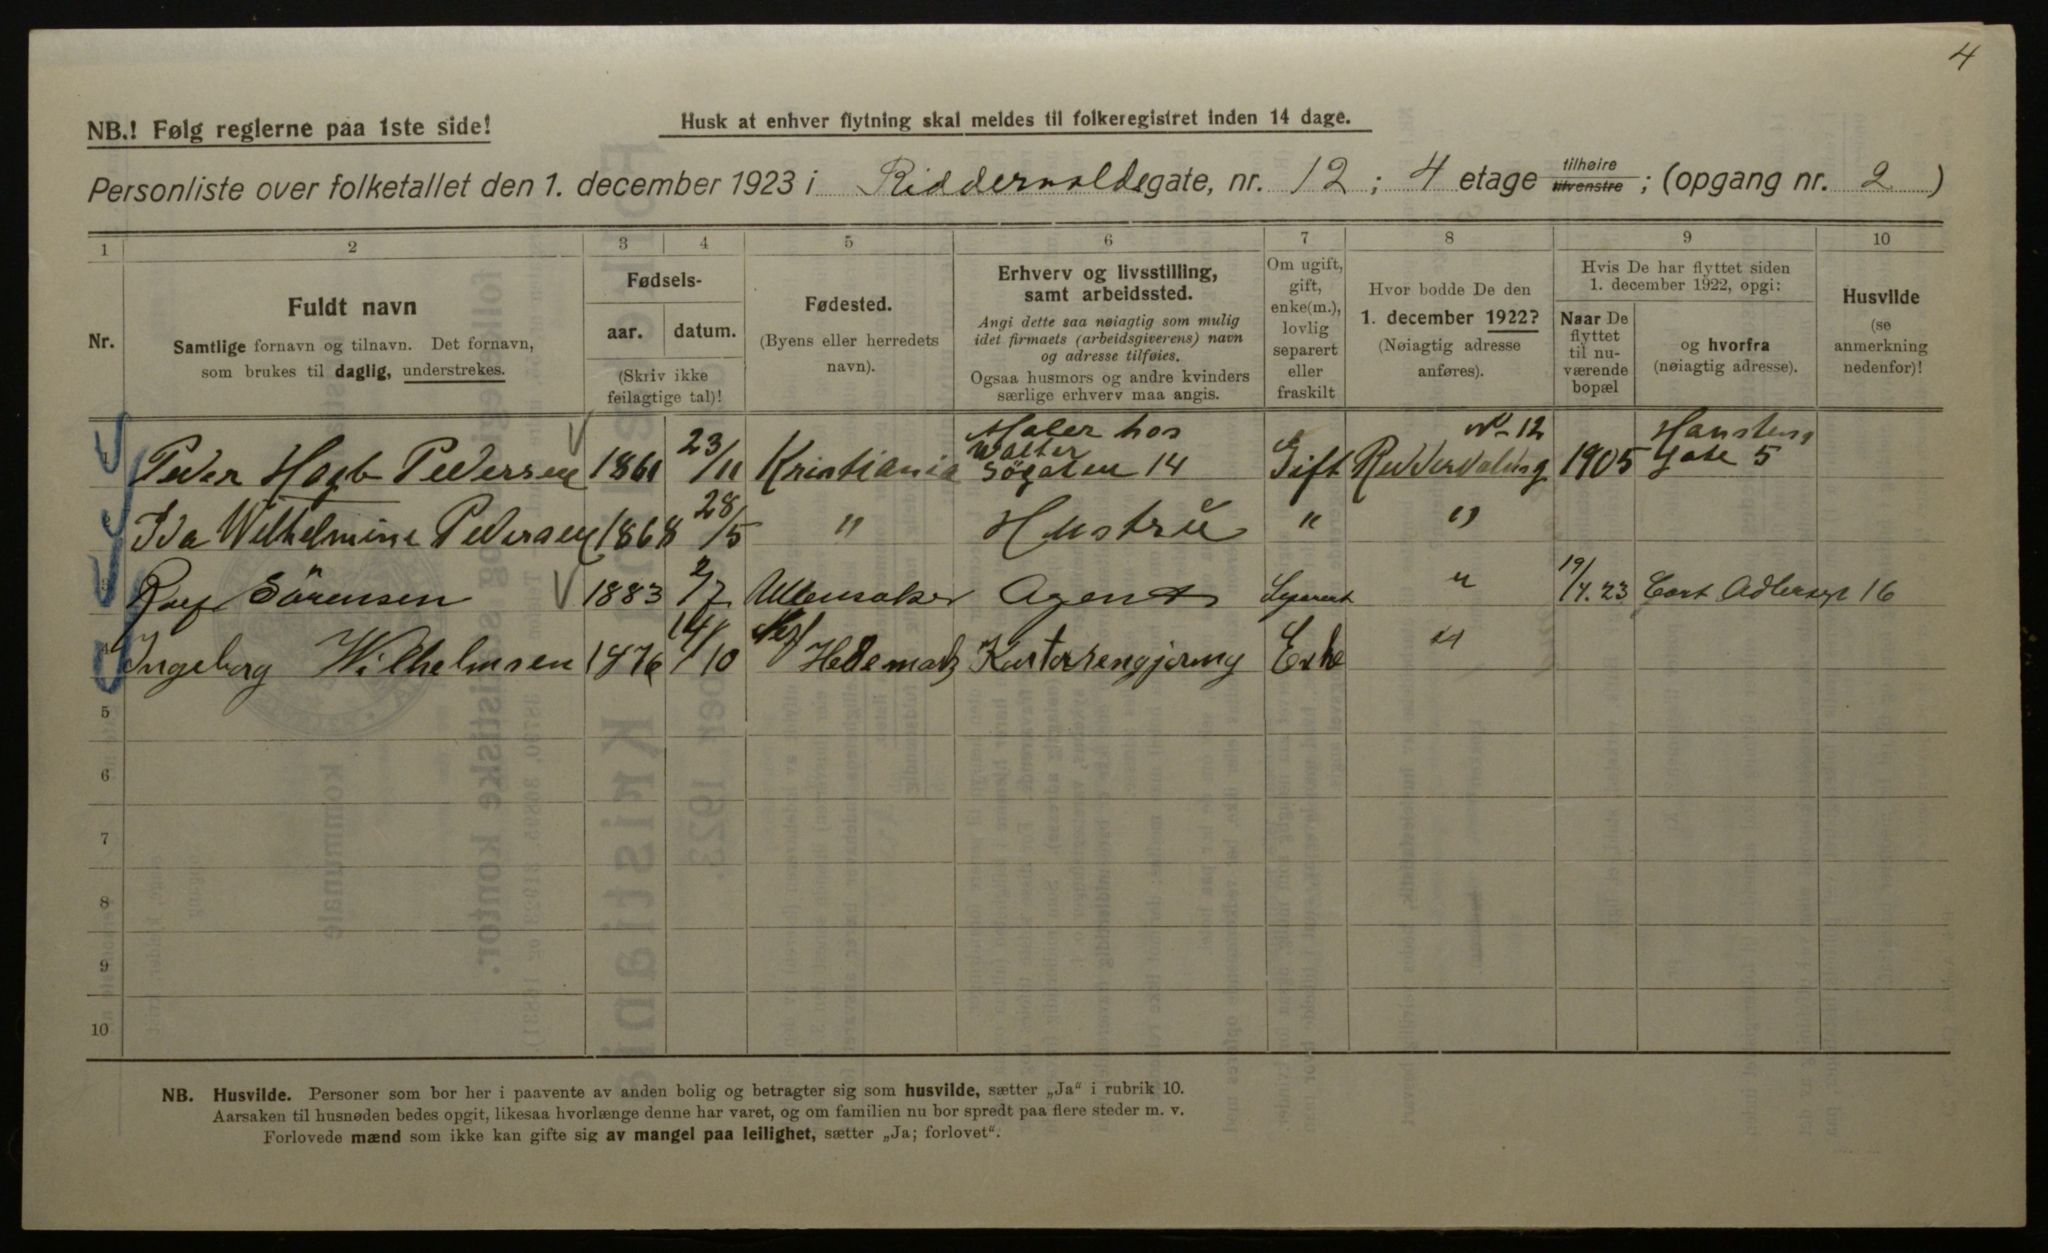 4
NB.! Følg reglerne paa 1ste side!
Husk at enhver flytning skal meldes til folkeregistret inden 14 dage.
Personliste over folketallet den 1. december 1923 i Riddervoldsgate, nr. 12 ; 4 etage tilhøire tilvenstre ; (opgang nr. 2 )
1 2 3 4 5 6 7 8 9 10
Nr.
Fuldt navn
Samtlige fornavn og tilnavn. Det fornavn,
som brukes til daglig, understrekes.
Fødsels-
aar. datum.
(Skriv ikke
feilagtige tal)!
Fødested.
(Byens eller herredets
navn).
Erhverv og livsstilling,
samt arbeidssted.
Angi dette saa nøiagtig som mulig
idet firmaets (arbeidsgiverens) navn
og adresse tilføies.
Ogsaa husmors og andre kvinders
særlige erhverv maa angis.
Om ugift,
gift,
enke(m.),
lovlig
separert
eller
fraskilt
Hvor bodde De den
1. december 1922?
(Nøiagtig adresse
anføres).
Hvis De har flyttet siden
1. december 1922, opgi:
Naar De
flyttet
til nu-
værende
bopæl
og hvorfra
(nøiagtig adresse).
Husvilde
(se
anmerkning
nedenfor)!
Maler hos
Walter
No 12
Peder Hagb Pedersen 1861 23/11 Kristiania Søgaten 14 Gift 1905 Gate 5
Ida Wilhelmine Pedersen 1868 28/5 " Hustru " "
Sörensen 1883 2/7 Ullensaker Agent Separert " 19/4.23 Cort Adlersgt 16
Ingeborg Wilhelmsen 1876 14/10 Hedemark Kontorrengjøring Enke "
5
6
7
8
9
10
NB. Husvilde. Personer som bor her i paavente av anden bolig og betragter sig som husvilde, sætter „Ja“ i rubrik 10.
Aarsaken til husnøden bedes opgit, likesaa hvorlænge denne har varet, og om familien nu bor spredt paa flere steder m. v.
Forlovede mænd som ikke kan gifte sig av mangel paa leilighet, sætter „Ja; forlovet“.